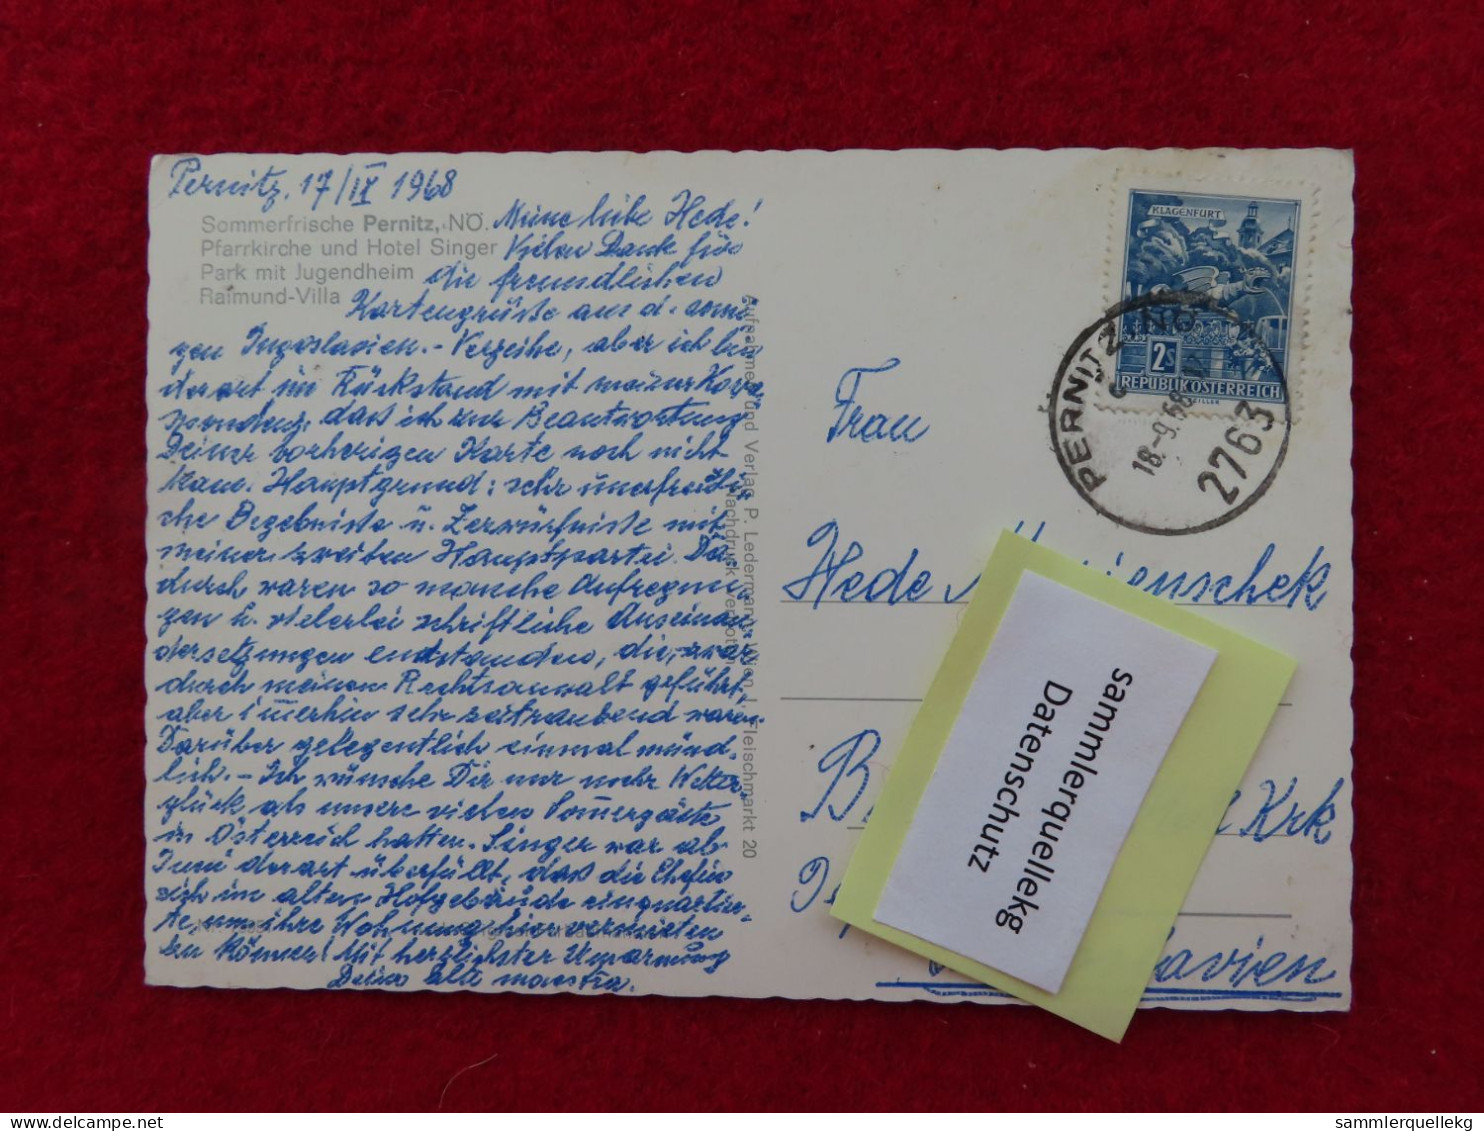 Pernitz, 17/IX 1968
Sommerfrische Pernitz, NÖ.
Pfarrkirche und Hotel Singer
Park mit Jugendheim
Raimund-Villa
Meine liebe Hede!
Vielen Dank für
die freundlichen
Kartengrüsse aus d. sonni-
gen Jugoslavien. - Verzeihe, aber ich bin
derart im Rückstand mit meiner Korre-
spondenz, dass ich zur Beantwortung
Deiner vorherigen Karte noch nicht
kam. Hauptgrund: sehr unerfreuli-
che Ergebnisse u. Zerwürfnisse mit
meiner zweiten Hauptpartei. Da-
durch waren so manche Aufregun-
gen u. vielerlei schriftliche Auseinan-
dersetzungen entstanden, die, zwar
durch meinen Rechtsanwalt geführt,
aber im̅erhin sehr zeitraubend waren.
Darüber gelegentlich einmal münd-
lich. - Ich wünsche Dir nur mehr Wetter-
glück als unsere vielen Som̅ergäste
in Österreich hatten. Singer war ab
Juni derart überfüllt, dass die Chefin
sich im alten Hofgebäude einquartier-
te, um ihre Wohnung hier vermieten
zu können! Mit herzlichster Umarmung
Deine alte maestra.
Aufnahme und Verlag P. Ledermann, Wien I, Fleischmarkt 20
Nachdruck verboten
KLAGENFURT
2S
REPUBLIK ÖSTERREICH
PERNITZ, NÖ
18.-9.68
2763
Frau
Hede
Krk
sammlerquellekg
Datenschutz
sammlerquellekg
delcampe.net